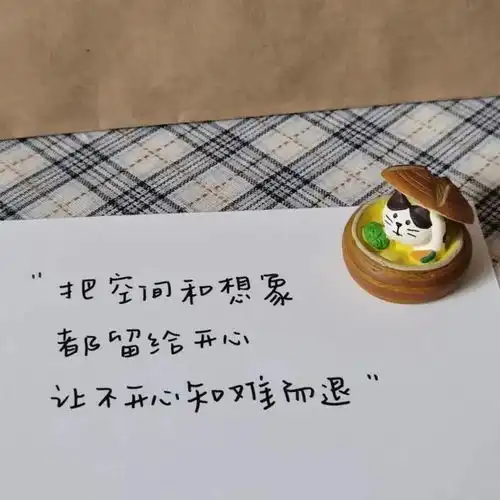 "把空间和想象
都留给开心
让不开心知难而退"